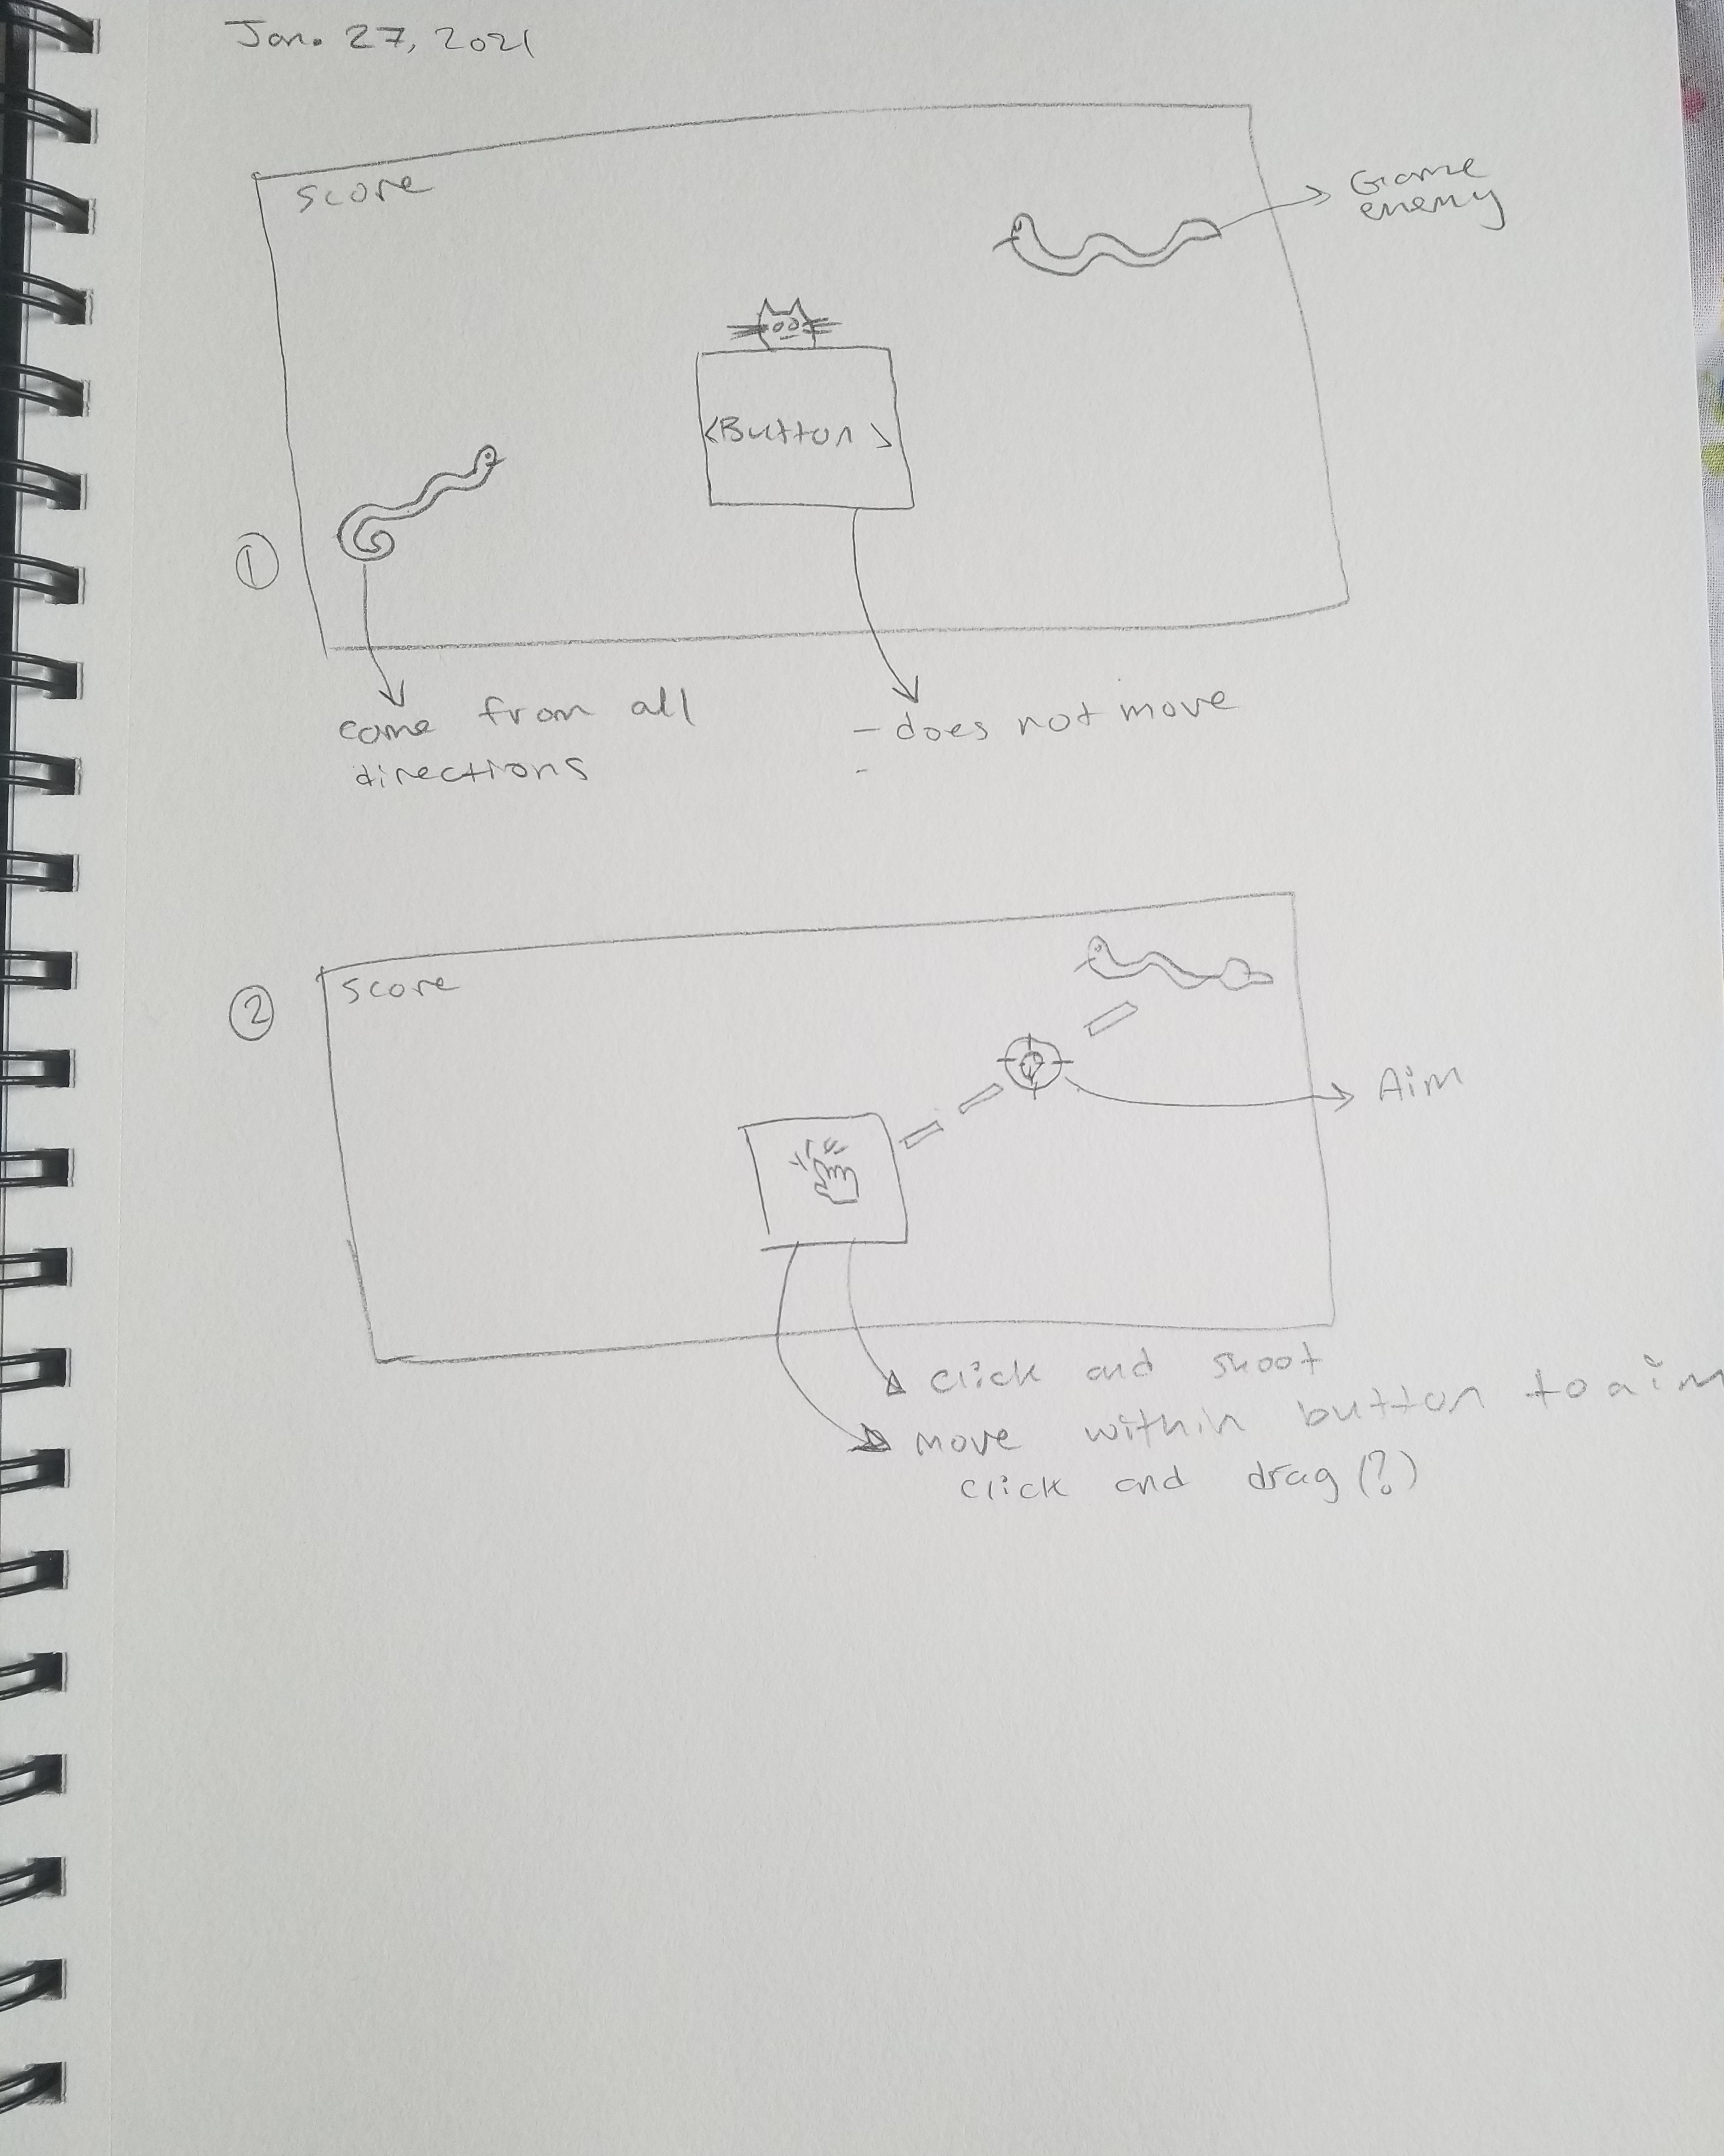 Jan. 27, 2021
score
Game
enemy
<Button>
①
come from all
directions
- does not move
-
②
score
Aim
click and shoot
move within button to aim
click and drag (?)